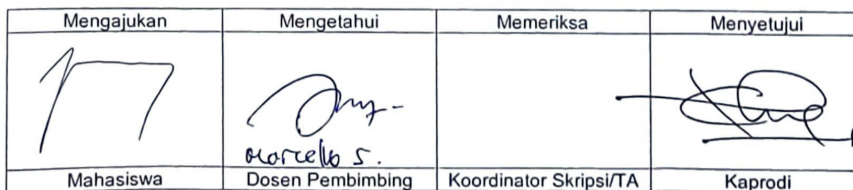 Mengajukan Mengetahui Memeriksa Menyetujui
Marcello S.
Mahasiswa Dosen Pembimbing Koordinator Skripsi/TA Kaprodi